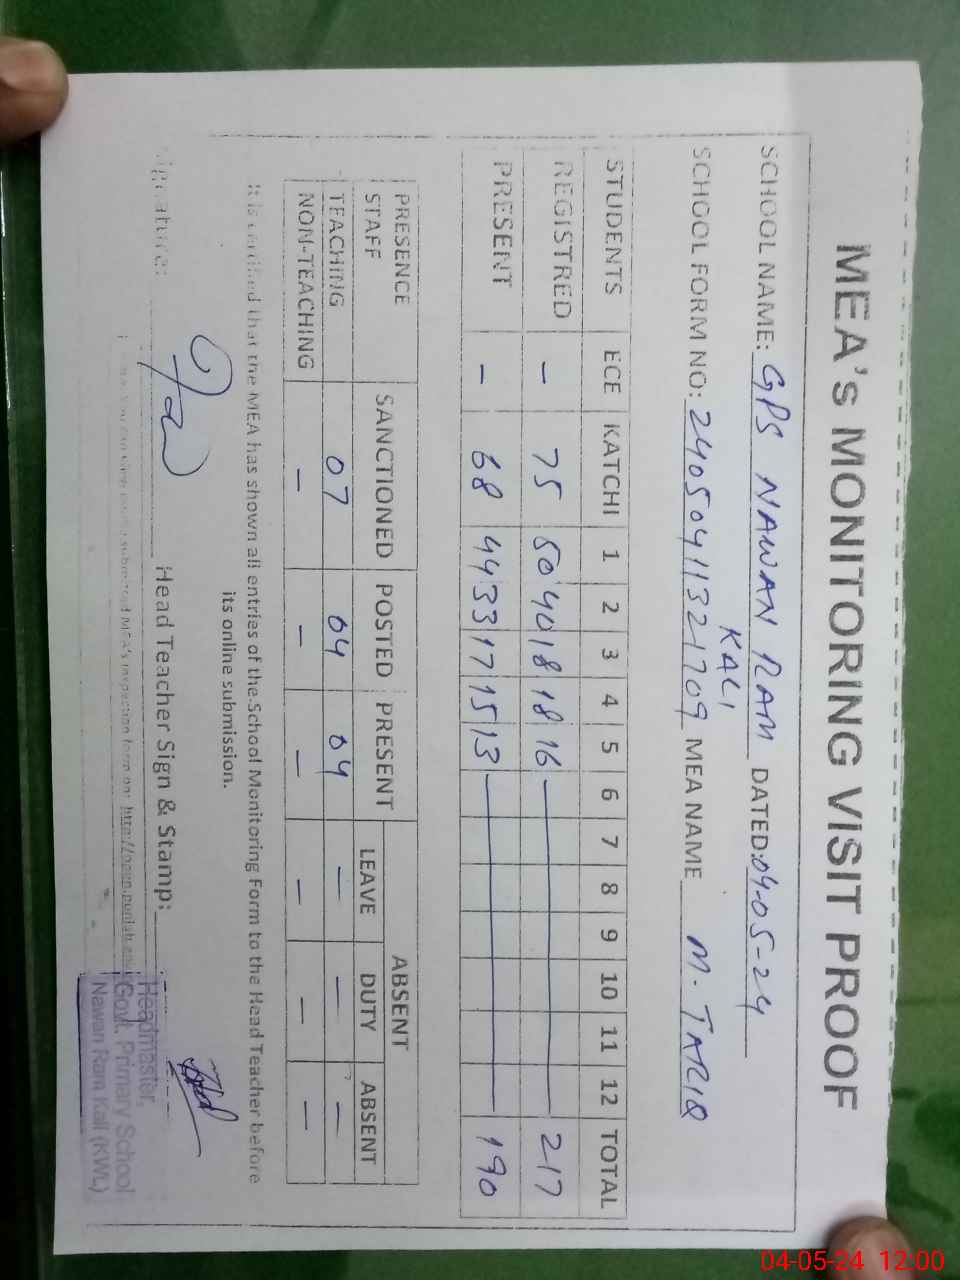 MEA's MONITORING VISIT PROOF
SCHOOL NAME: GPS NAWAN RAM KALI DATED: 04-05-24
SCHOOL FORM NO: 24050411321709 MEA NAME M. TARIQ
STUDENTS ECE KATCHI 1 2 3 4 5 6 7 8 9 10 11 12 TOTAL
REGISTRED - 75 50 40 18 18 16 - 217
PRESENT - 68 44 33 17 15 13 - 190
PRESENCE STAFF SANCTIONED POSTED PRESENT ABSENT
LEAVE DUTY ABSENT
TEACHING 07 04 04 - - -
NON-TEACHING - - - - - -
It is certified that the MEA has shown all entries of the School Monitoring Form to the Head Teacher before
its online submission.
Signature: Head Teacher Sign & Stamp:
you can view submitted MEA's inspection form on: http://open.punjab.gov
Headmaster,
Govt. Primary School
Nawan Ram Kali (KWL)
04-05-24 12:00